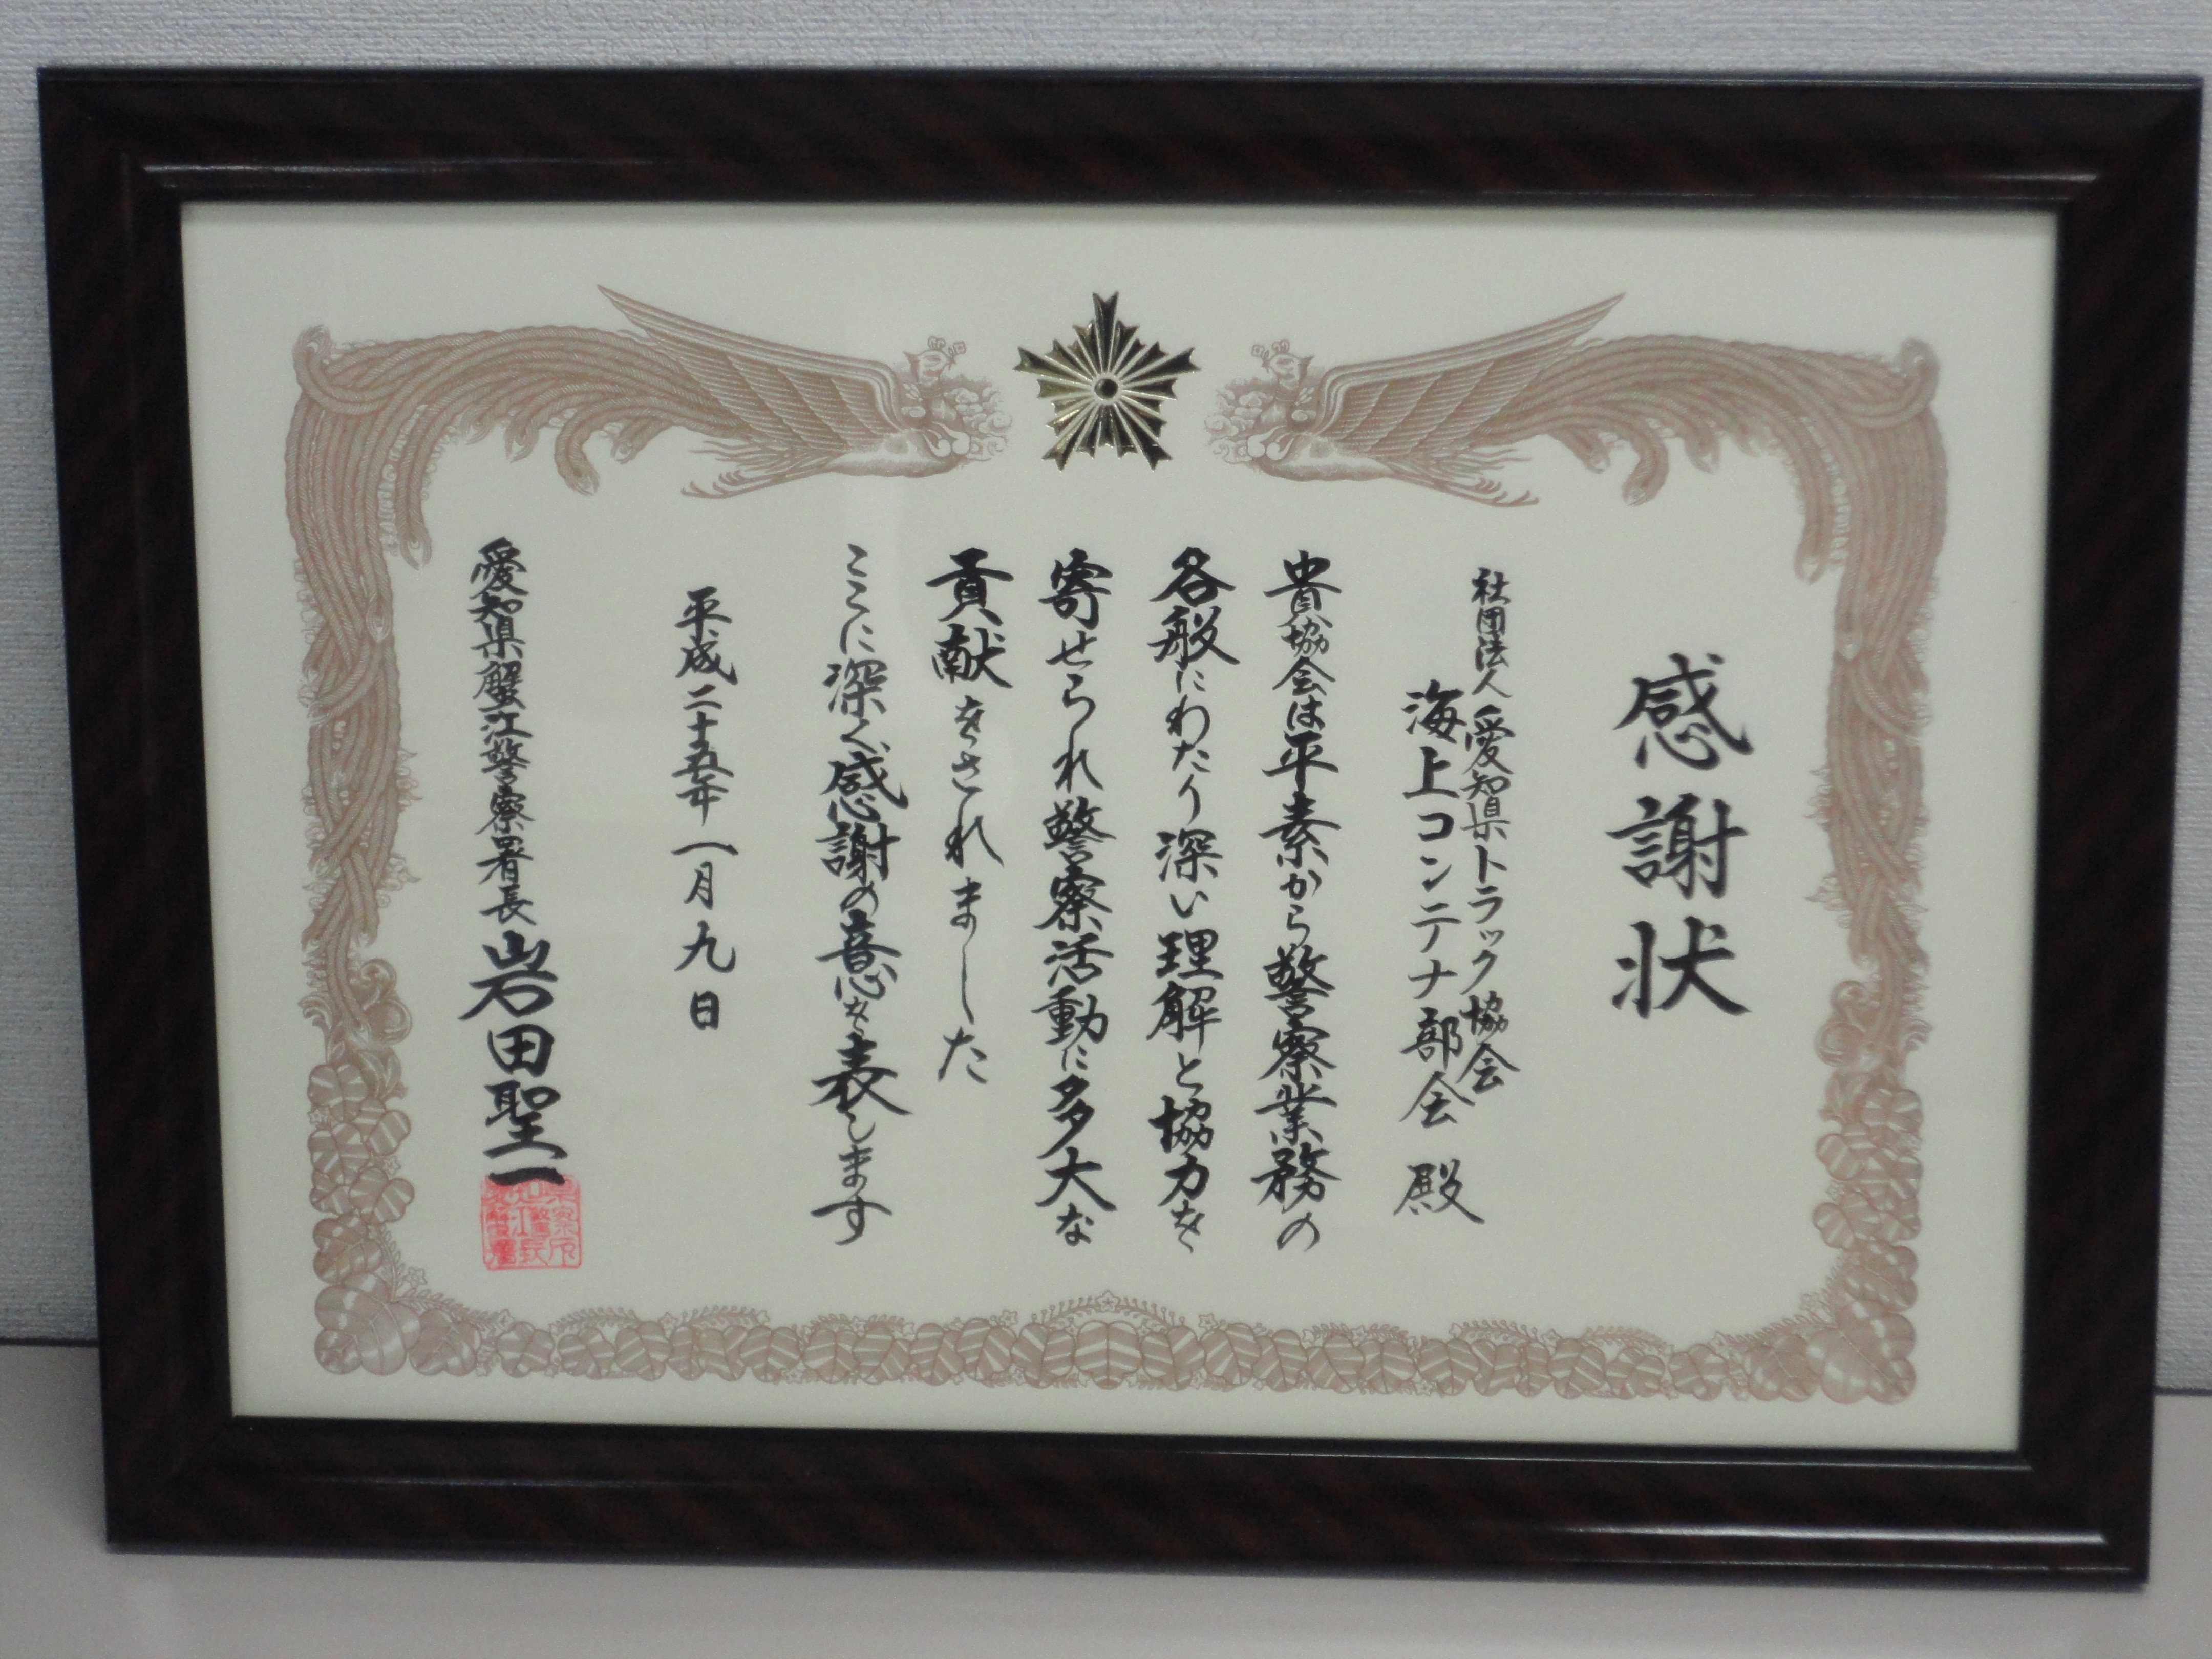 感謝状
社団法人愛知県トラック協会
海上コンテナ部会 殿
貴協会は平素から警察業務の
各般にわたり深い理解と協力を
寄せられ警察活動に多大な
貢献をされました
ここに深く感謝の意を表します
平成二十五年一月九日
愛知県蟹江警察署長 岩田聖一